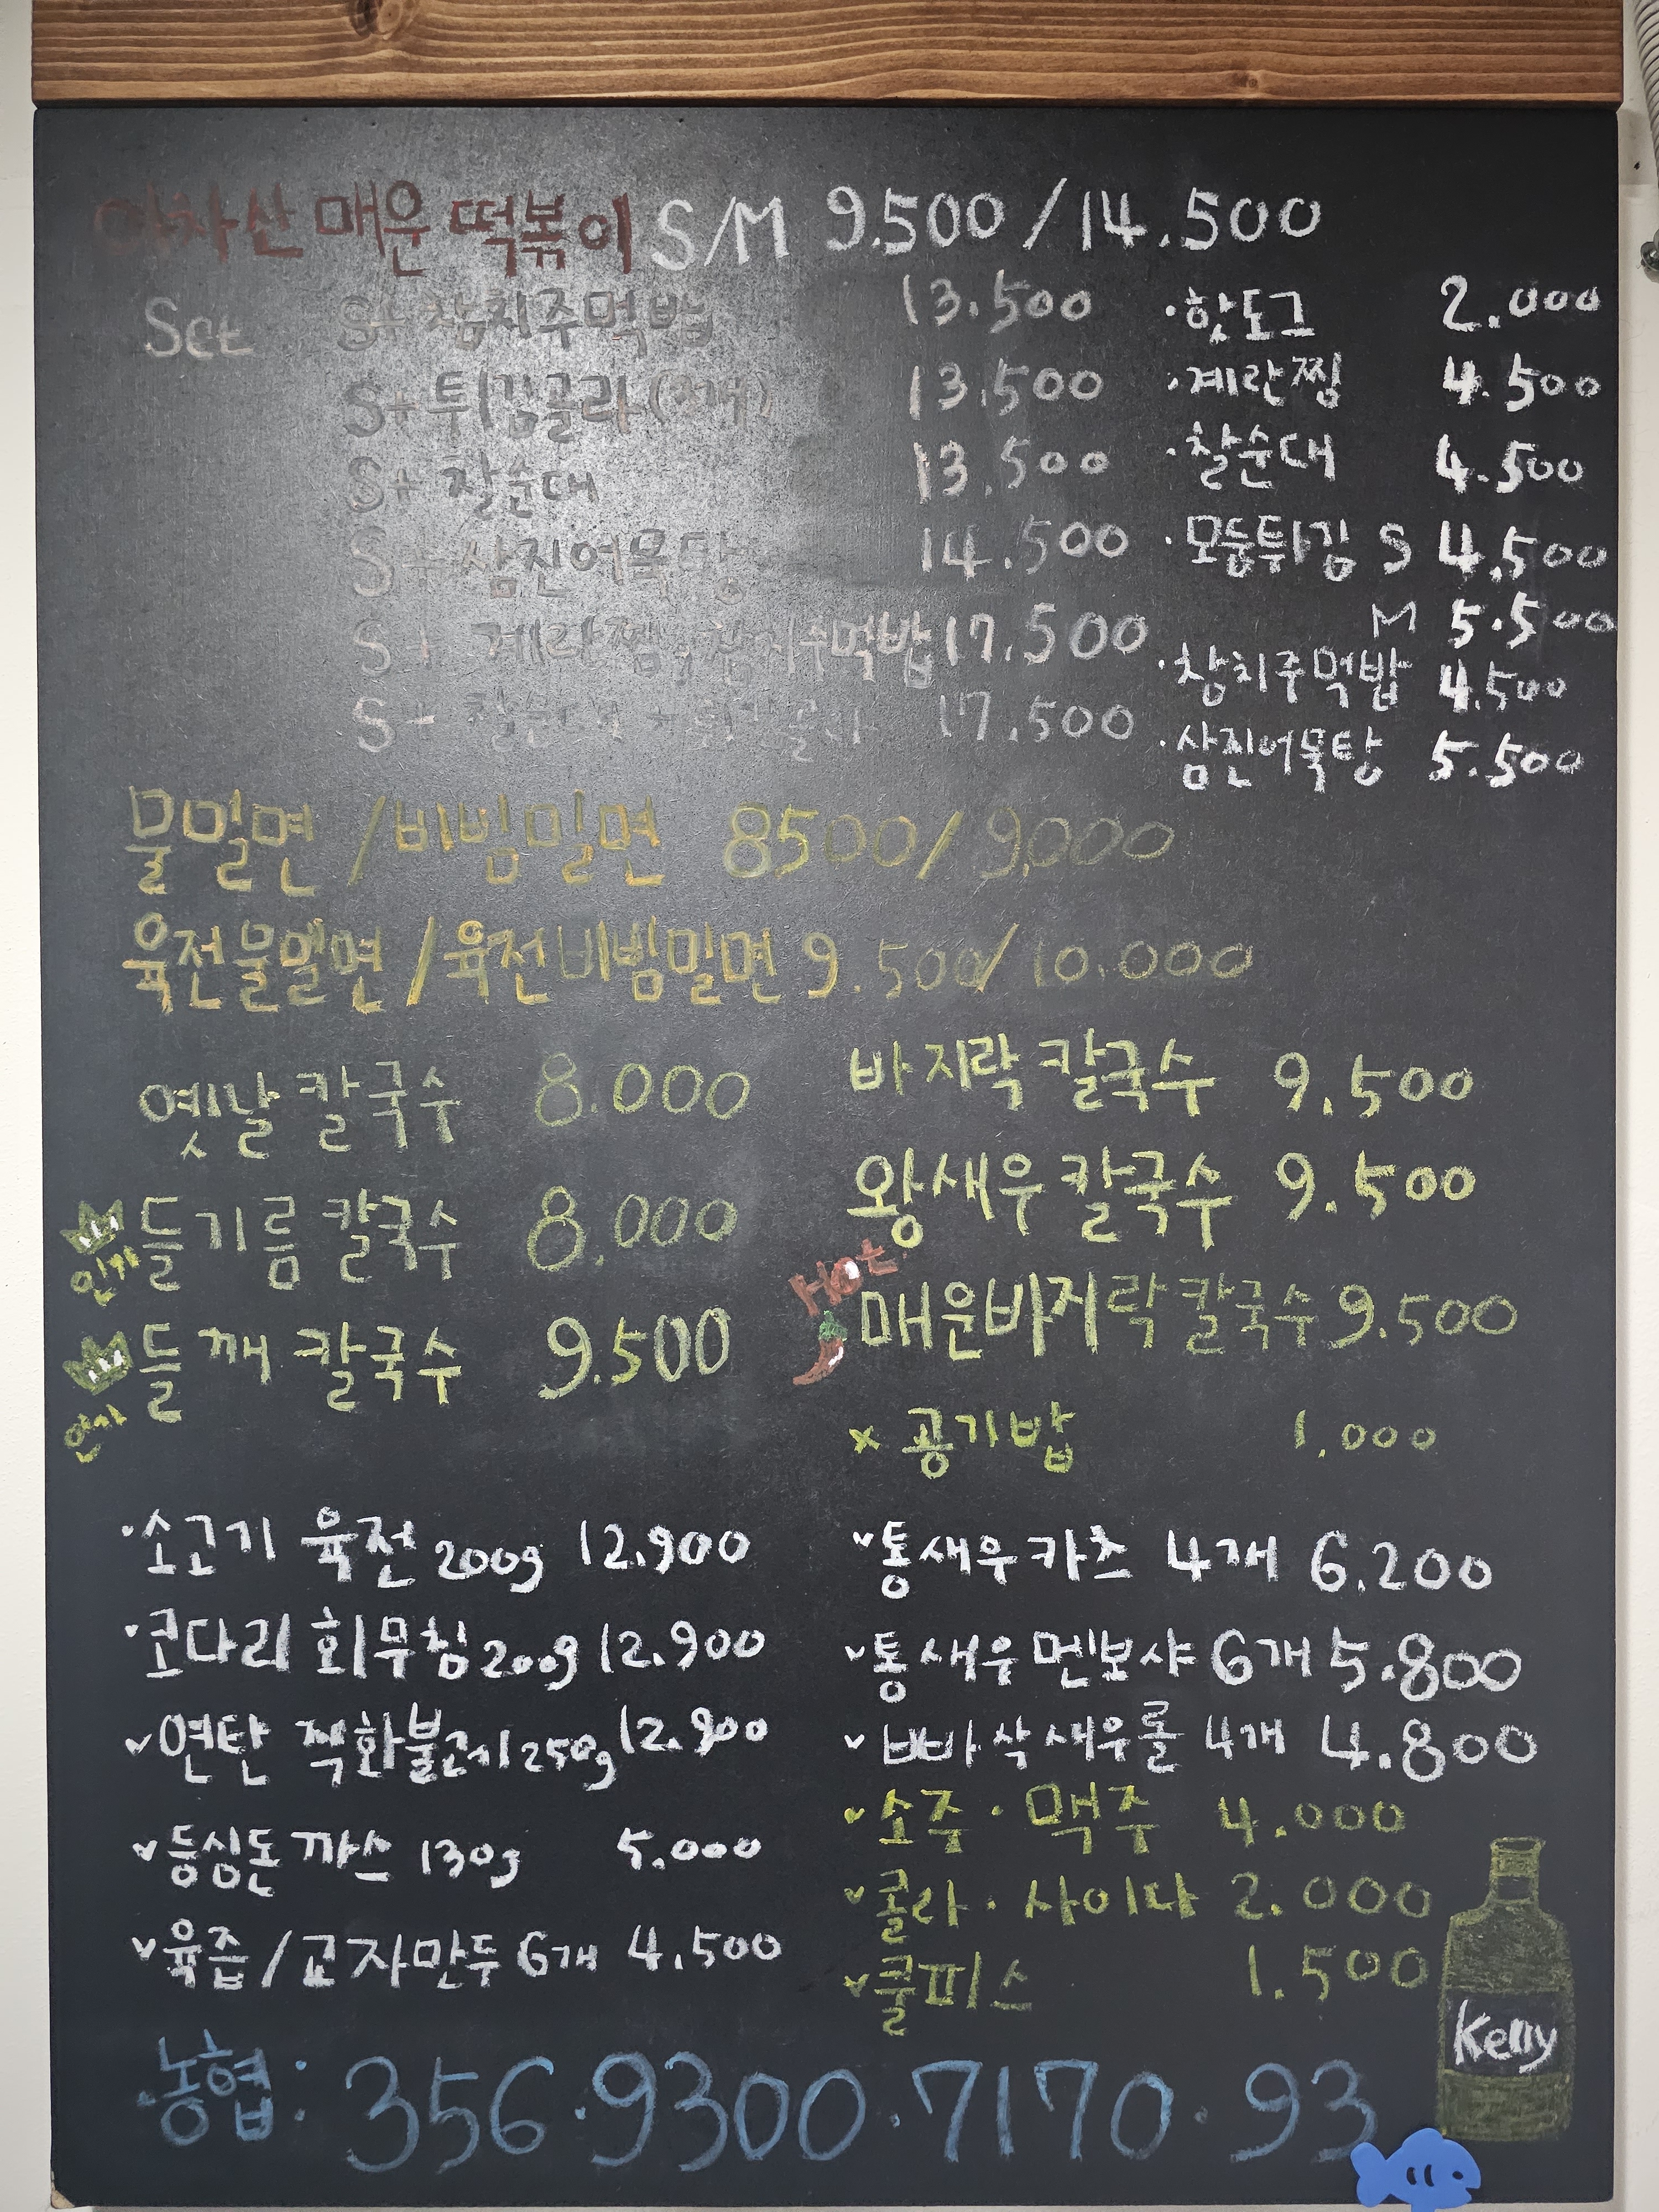 아차산 매운 떡볶이 S/M 9.500/14.500
Set S+ 참치주먹밥 13.500
S+ 튀김골라(3개) 13.500
S+ 찰순대 13.500
S+ 삼진어묵탕 14.500
S+ 계란찜+참치주먹밥 17.500
S+ 찰순대+튀김골라 17.500
·핫도그 2.000
·계란찜 4.500
·찰순대 4.500
·모둠튀김 S 4.500
M 5.500
·참치주먹밥 4.500
·삼진어묵탕 5.500
물밀면/비빔밀면 8500/9,000
육전물밀면/육전비빔밀면 9.500/10.000
옛날 칼국수 8.000
인기 들기름 칼국수 8.000
인기 들깨 칼국수 9.500
바지락 칼국수 9.500
왕새우 칼국수 9.500
Hot 매운바지락칼국수 9.500
× 공기밥 1.000
·소고기 육전 200g 12.900
·코다리 회무침 200g 12.900
✓연탄 직화불고기 250g 12.900
✓등심돈까스 130g 5.000
✓육즙/교자만두 6개 4.500
✓통새우카츠 4개 6.200
✓통새우멘보샤 6개 5.800
✓빠삭새우롤 4개 4.800
✓소주·맥주 4.000
✓콜라·사이다 2.000
✓쿨피스 1.500
Kelly
농협: 356·9300·7170·93